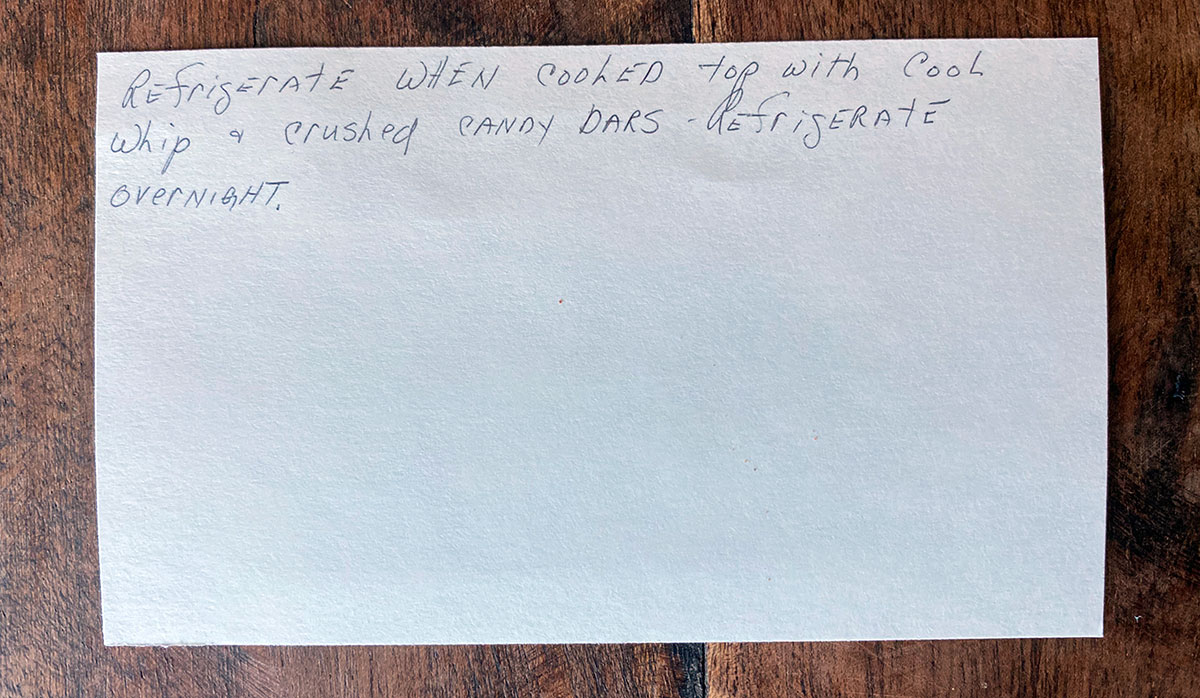 Refrigerate when cooled top with Cool
Whip & crushed candy bars - Refrigerate
overnight.